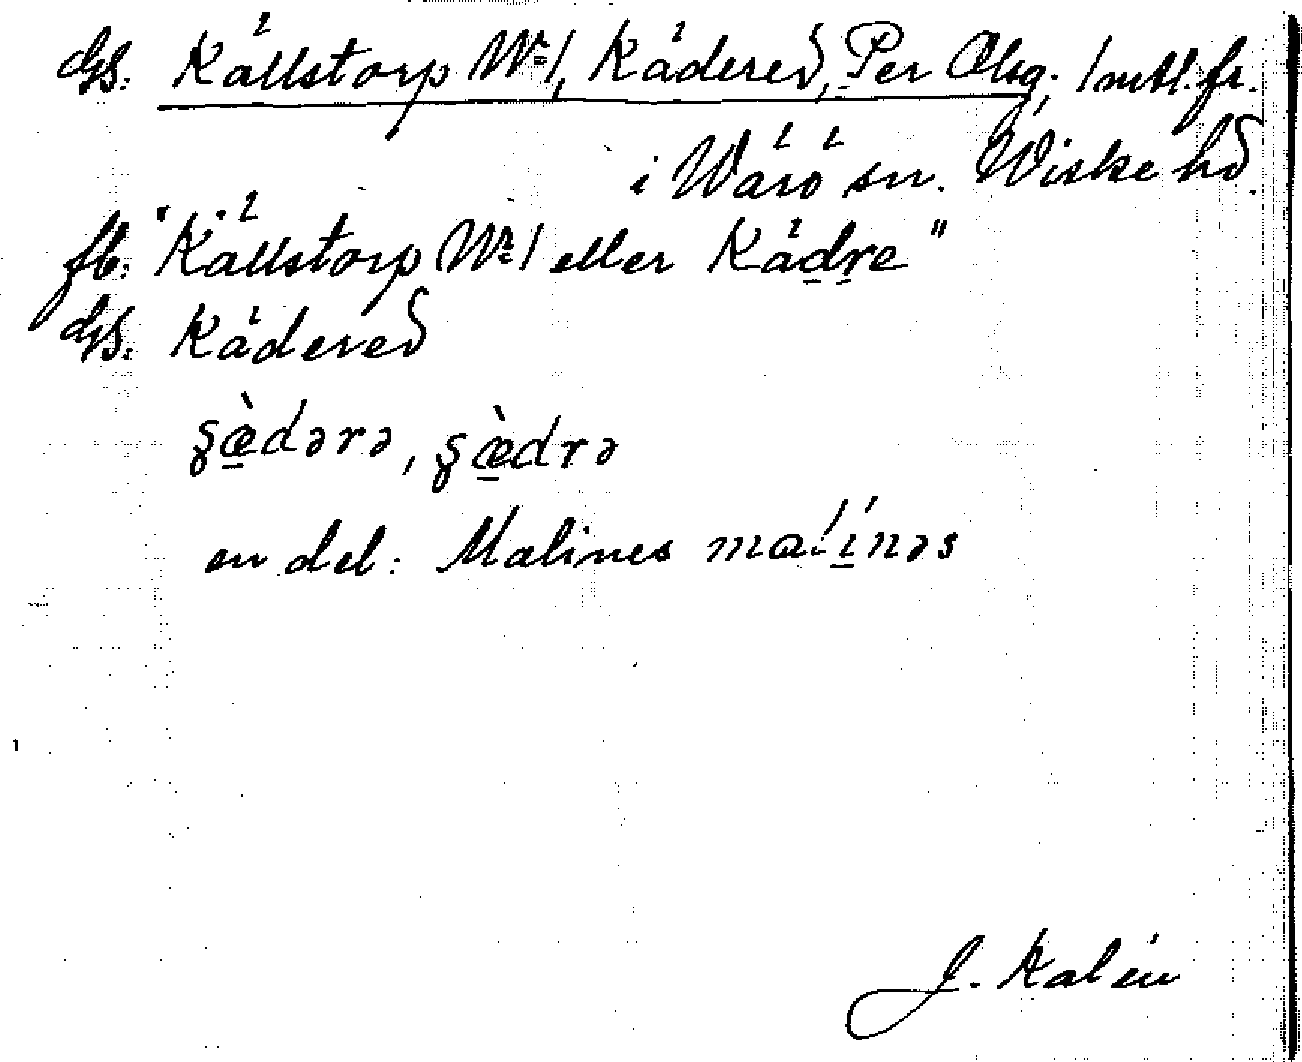 GS. Källstorp No 1, Kädered, Per Olsg. 1 mtl. fr.
i Wärö sn. Wiske hd.
fb: "Källstorp No 1 eller Kädre"
GS. Kädered
ʂæ̀dərə, ʂæ̀drə
en del: Malines malínəs
J. Kalén